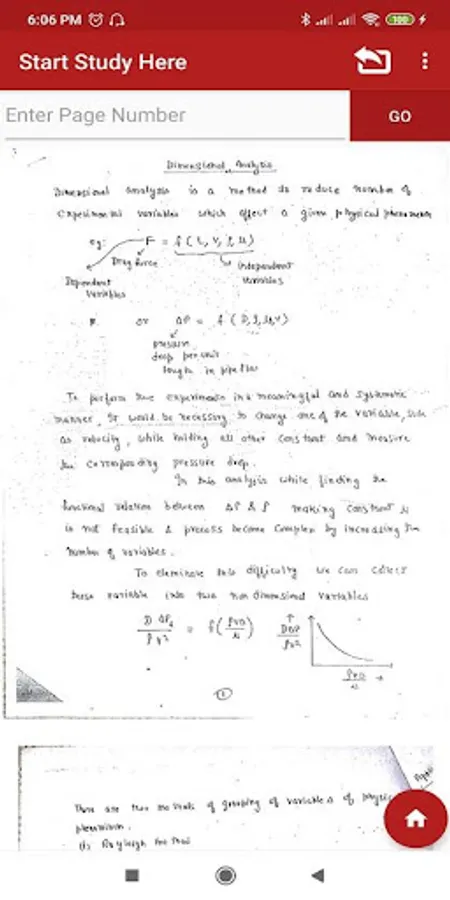 6:06 PM
100
Start Study Here
Enter Page Number
GO
Dimensional Analysis
Dimensional analysis is a method to reduce number of
experimental variables which affect a given physical phenomena
eg: F = f(L, V, ρ, μ)
Drag force
independent
variables
Dependent
variables
or ΔP = f (D, ρ, μ, v)
pressure
drop per unit
length in pipe flow
To perform the experiments in a meaningful and systematic
manner, It would be necessary to change one of the variable, such
as velocity, while holding all other constant and measure
the corresponding pressure drop.
In this analysis while finding the
functional relation between ΔP & ρ making constant μ
is not feasible & process become complex by increasing the
number of variables.
To eleminate this difficulty we can collect
these variable into two non dimensional variables
D ΔP / ρ v² = f(ρVD/μ)
DΔP / ρv²
ρVD / μ
1
There are two methods of grouping of variables of physic
phenomenon.
(1) Rayleigh method